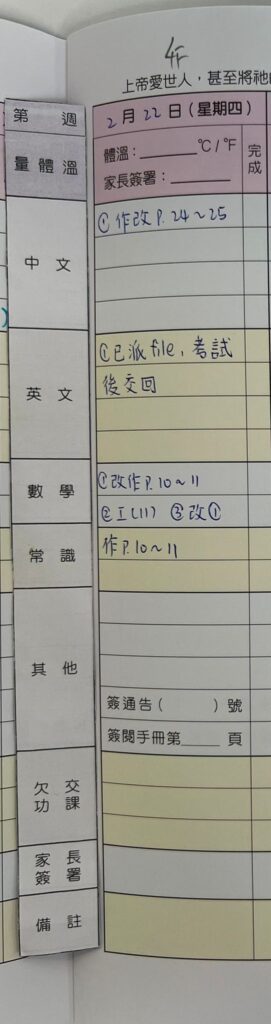 4F
上帝愛世人，甚至將祂
第 週
2月22日(星期四)
量體溫
體溫：______°C/°F
家長簽署：______
完成
中文
①作改P.24~25
英文
①已派file，考試
後交回
數學
①改作P.10~11
②工(11) ③改①
常識
作P.10~11
其他
簽通告( )號
簽閱手冊第____頁
欠交
功課
家長
簽署
備註